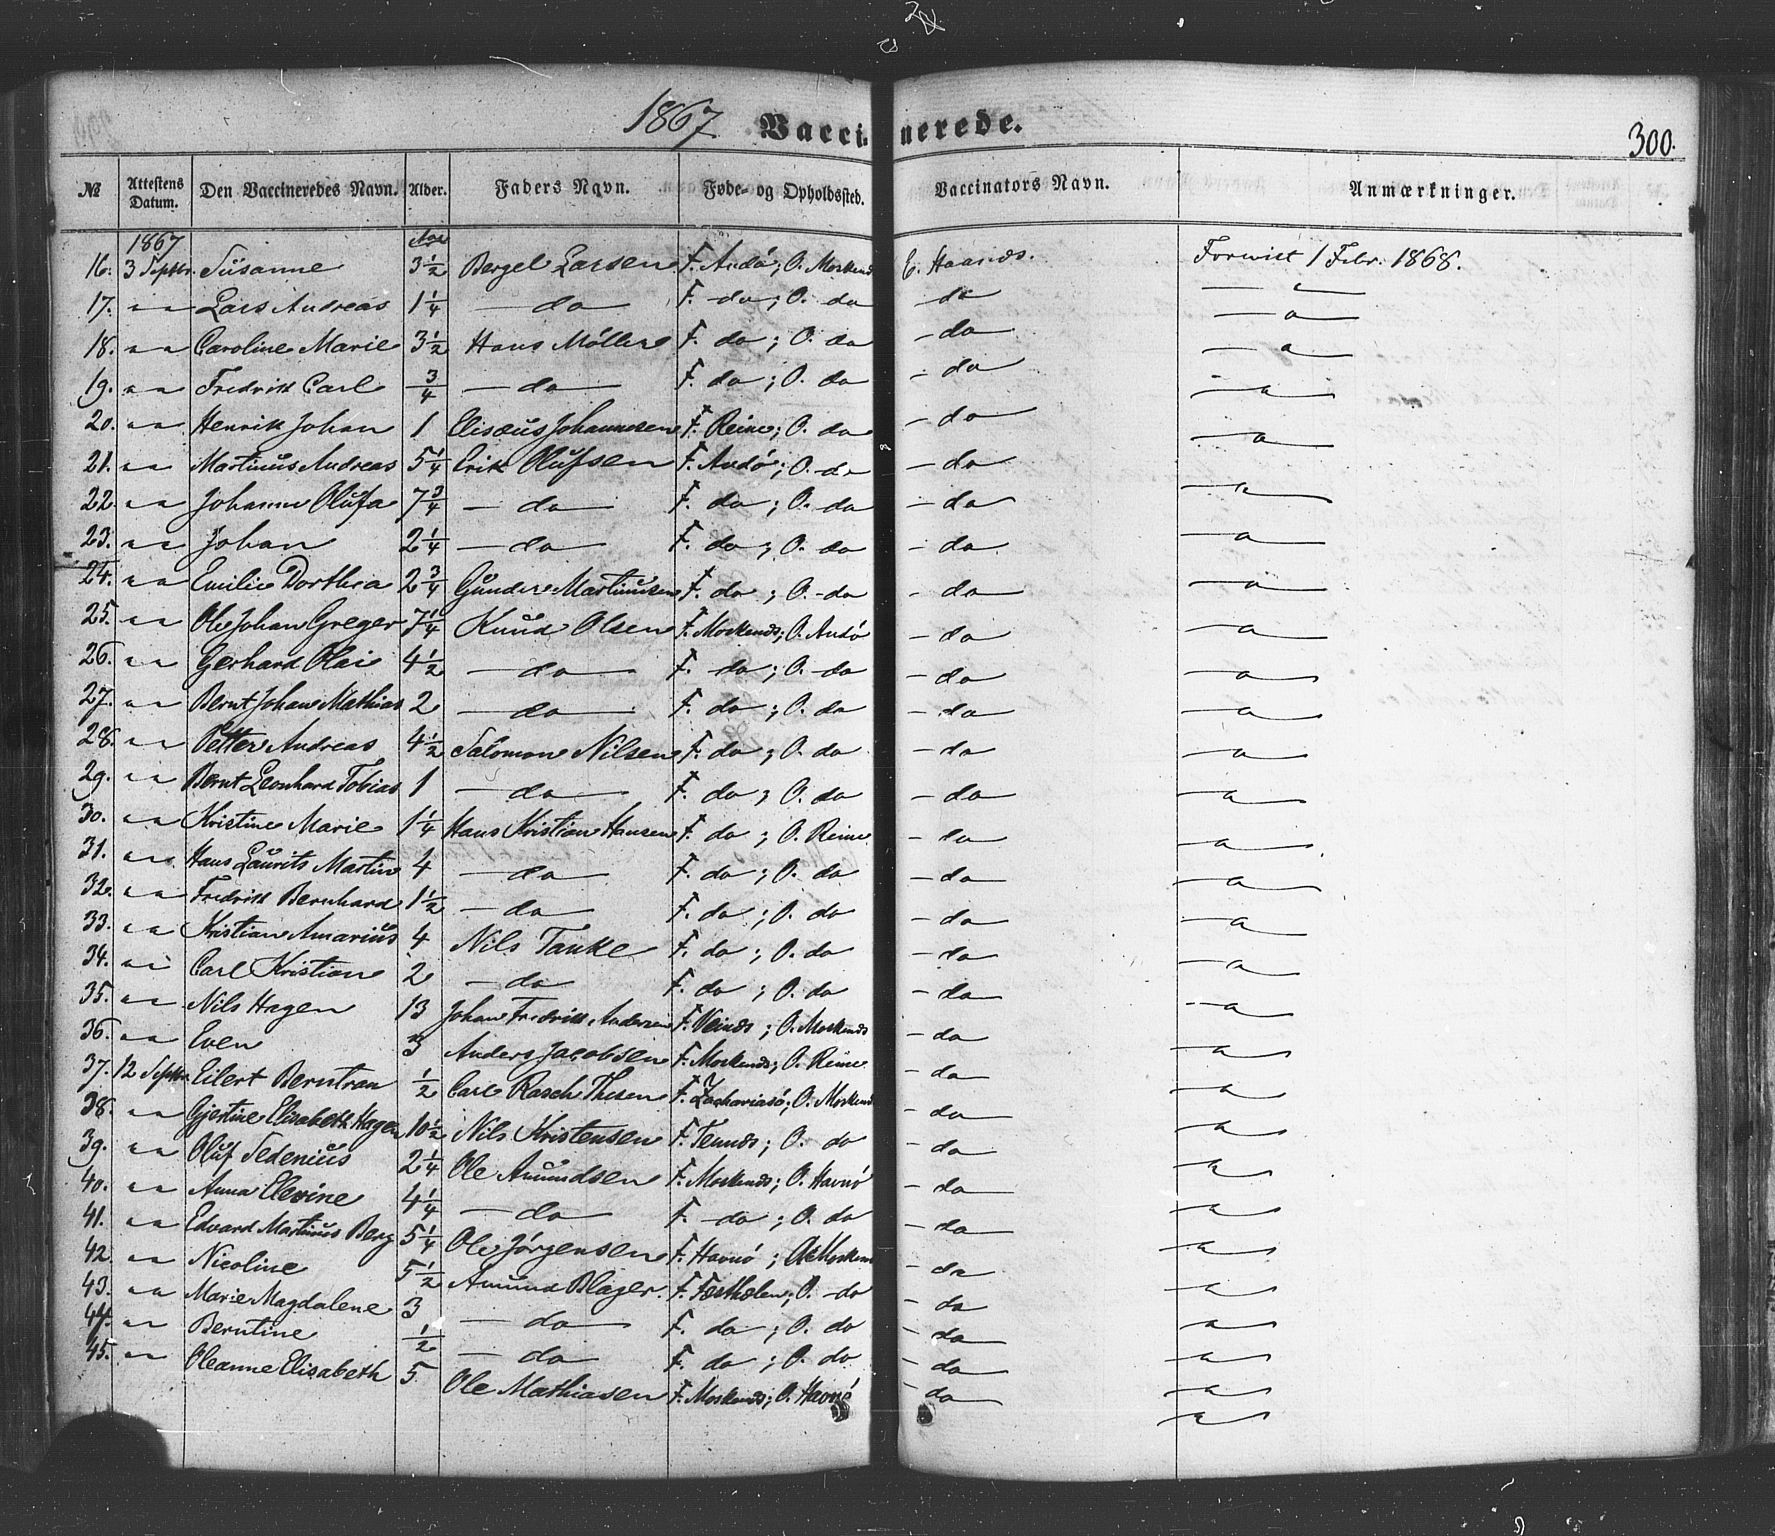 1867 Vaccinerede. 300.
№ Attestens Datum. Den Vaccineredes Navn. Alder. Faders Navn. Føde- og Opholdssted. Vaccinators Navn. Anmærkninger.
1867 Aar
16. 3 Septbr. Susanne 3 1/2 Bergel Larsen F. Andö; O. Moskenæs E. Haanæs. Forevist 1 Febr. 1868.
17. " " Lars Andreas 1 1/4 — do — F. do; O. do — do — " —
18. " " Caroline Marie 3 1/2 Hans Möller F. do; O. do — do — " —
19. " " Fredrik Carl 3/4 — do — F. do; O. do — do — " —
20. " " Henrik Johan 1 Elisæus Johannesen F. Reine; O. do — do — " —
21. " " Martinus Andreas 5 1/4 Erik Olufsen F. Andö; O. do — do — " —
22. " " Johanna Olufa 7 3/4 — do — F. do; O. do — do — " —
23. " " Johan 2 1/4 — do — F. do; O. do — do — " —
24. " " Emilie Dorthea 2 3/4 Gunder Martinusen F. do; O. do — do — " —
25. " " Ole Johan Greger 7 1/4 Knud Olsen F. Moskenæs; O. Andö — do — " —
26. " " Gerhard Olai 4 1/2 — do — F. do; O. do — do — " —
27. " " Bernt Johan Mathias 2 — do — F. do; O. do — do — " —
28. " " Petter Andreas 4 1/2 Salomon Nilsen F. do; O. do — do — " —
29. " " Bernt Leonhard Tobias 1 — do — F. do; O. do — do — " —
30. " " Kristine Marie 1 1/4 Hans Kristian Hansen F. do; O. Reine — do — " —
31. " " Hans Laurits Martin 4 — do — F. do; O. do — do — " —
32. " " Fredrik Bernhard 1 1/2 — do — F. do; O. do — do — " —
33. " " Kristian Amarius 4 Nils Tanke F. do; O. do — do — " —
34. " " Carl Kristian 2 — do — F. do; O. do — do — " —
35. " " Nils Hagen 13 Johan Fredrik Andersen F. ; O. Moskenæs — do — " —
36. " " Even 3 Anders Jacobsen F. Moskenæs; O. Reine — do — " —
37. 12 Septbr. Eilert Berntran 1/2 Carl Rasch Thesen F. Zachariasö; O. Moskenæs — do — " —
38. " " Gjertine Elisabeth Hagen 10 1/2 Nils Kristensen F. ; O. do — do — " —
39. " " Oluf Sedenius 2 1/4 Ole Amundsen F. Moskenæs; O. Havnö — do — " —
40. " " Anna Elevine 4 1/4 — do — F. do; O. do — do — " —
41. " " Edvard Martinus Berg 5 1/4 Ole Jörgensen F. Havnö; O. Moskenæs — do — " —
42. " " Nicoline 5 1/2 Amund Blager. F. ; O. do — do — " —
43. " " Marie Magdalene 3 — do — F. do; O. do — do — " —
44. " " Berntine 1/2 — do — F. do; O. do — do — " —
45. " " Oleanne Elisabeth 5 Ole Mathiasen F. Moskenæs; O. Havnö — do — " —